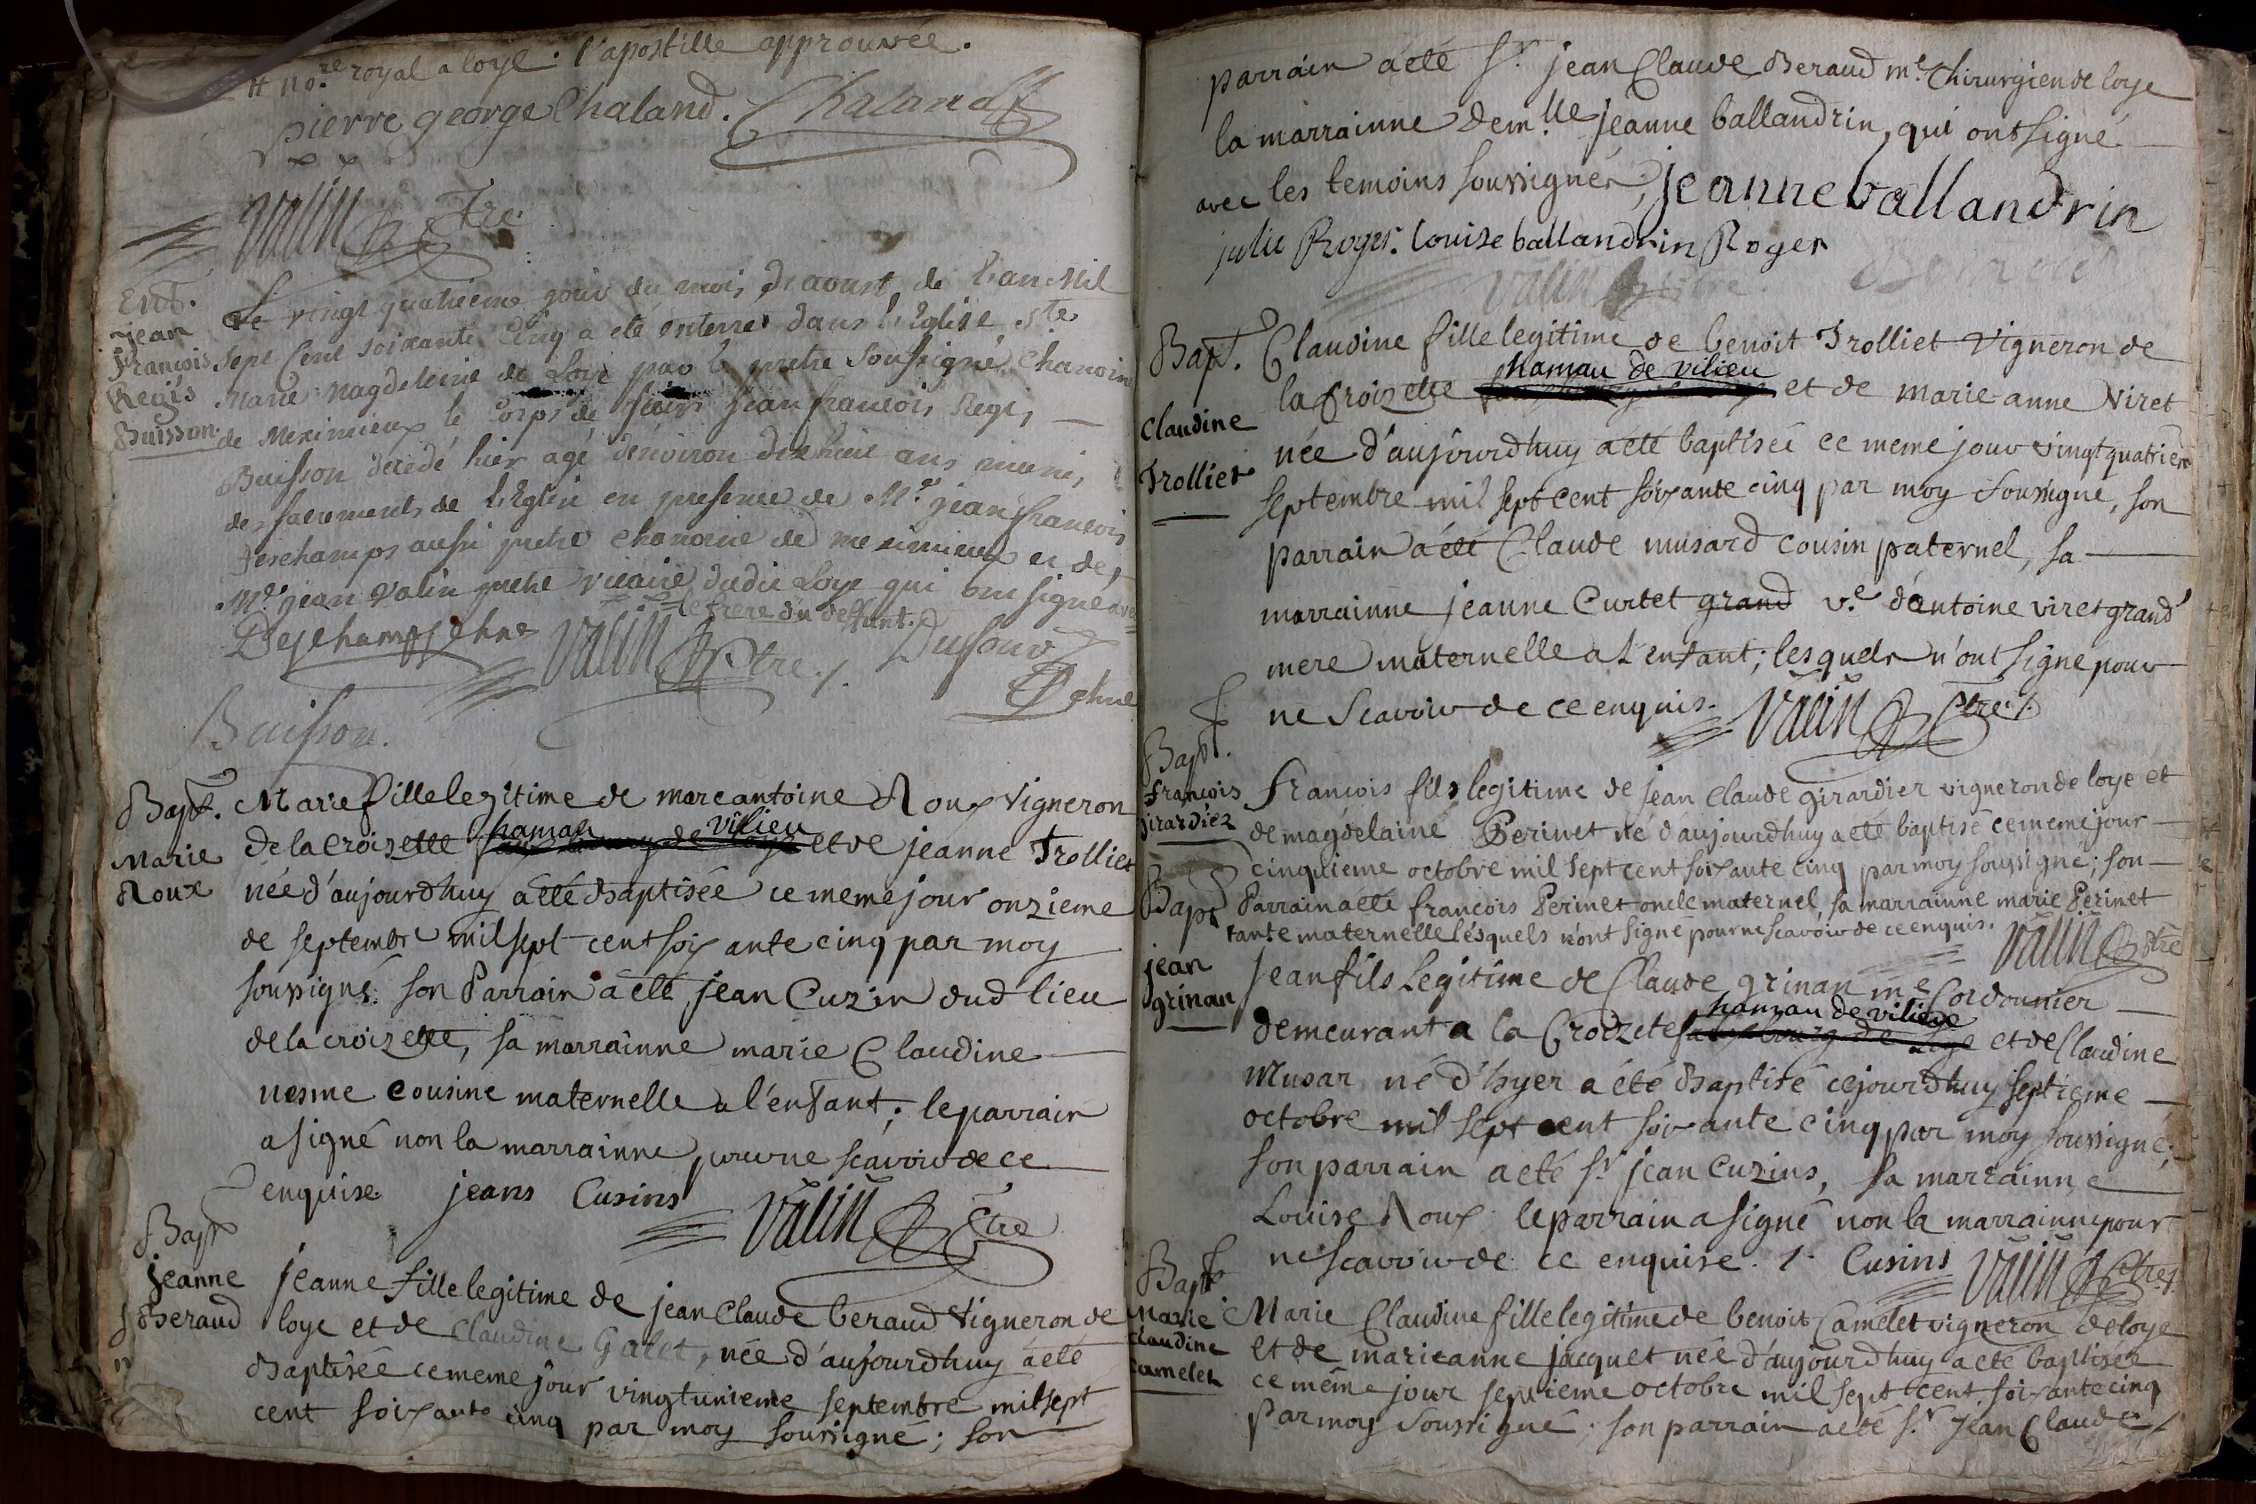 # no.re royal a loye. l'apostille approuvée.
pierre george Chaland. Chaland
Valin Ptre
Ent.
jean
François
Regis
Buisson
Le vingt quatrieme jour du mois d'aoust de l'an mil
sept cent soixante cinq a eté enterré dans l'Eglise ste
Marie Magdeleine de Loye par le pretre soussigné chanoine
de Meximieux le Corps de sieur jean françois Regis
Buisson decedé hier agé d'environ dix huit ans muni
des sacrements de l'Eglise en presence de Mr. jean françois
Deschamps aussi pretre chanoine de meximieux et de
Mre jean Valin pretre vicaire dudit Loye qui ont signé avec
le frere du deffunt.
Deschamps chne Valin Ptre. Dufour
chne
Buisson.
Bapt.
Marie
Roux
Marie fille legitime de marc antoine Roux Vigneron
de la croizette hamau de vilieu et de jeanne Trolliet
née d'aujourdhuy a été baptisée ce meme jour onzieme
de septembre mil sept cent soixante cinq par moy
soussigné: son Parrain a été jean Cuzin dud lieu
de la croizette, sa marrainne marie Claudine
nesme cousine maternelle a l'enfant; le parrain
a signé non la marrainne pour ne scavoir de ce
enquise jeans Cusins Valin Ptre
Bapt
jeanne
Beraud
jeanne fille legitime de jean Claude beraud Vigneron de
loye et de Claudine Galet, née d'aujourdhuy a été
Baptisée ce meme jour vingtunieme septembre mil sept
cent soixante cinq par moy soussigné; son
parrain a été sr. jean Claude Beraud me. Chirurgien de loye
la marrainne dem.lle jeanne ballandrin, qui ont signé
avec les temoins soussignés, jeanne ballandrin
julie Roger. louise ballandrin Roger
Valin Ptre Beraud
Bapt.
Claudine
Trolliet
Claudine fille legitime de benoit Trolliet Vigneron de
la Croizette hamau de vilieu et de marie anne Viret
née d'aujourdhuy a été baptisée ce meme jour vingt quatrieme
septembre mil sept cent soixante cinq par moy soussigné, son
parrain a été Claude musard cousin paternel, sa
marrainne jeanne Curtet grand ve. d'antoine viret grand'
mere maternelle a l'enfant; lesquels n'ont signé pour
ne Scavoir de ce enquis. Valin Ptre.
Bapt.
françois
girardier
françois fils legitime de jean claude girardier vigneron de loye et
de magdelaine Perinet né d'aujourdhuy a été baptisé ce meme jour
cinquieme octobre mil sept cent soixante cinq par moy soussigné; son
Parrain a été françois Perinet oncle maternel, sa marrainne marie Perinet
tante maternelle lesquels n'ont signé pour ne scavoir de ce enquis. Valin Ptre
Bapt
jean
grinan
Jean fils Legitime de Claude grinan me Cordonnier
demeurant a la Croizete hamau de vilieu et de Claudine
Musar né d'hyer a été Baptisé cejourdhuy septieme
octobre mil sept cent soixante cinq par moy soussigné;
son parrain a été sr. jean Cuzins, sa marrainne
Louise Roux le parrain a signé non la marrainne pour
ne scavoir de ce enquise. J. Cusins Valin Ptre
Bapt
Marie
Claudine
Camelet
Marie Claudine fille legitime de benoit Camelet vigneron de loye
et de marieanne jacquet née d'aujourdhuy a été baptisée
ce même jour septieme octobre mil sept cent soixante cinq
Par moy Soussigné; son parrain a été sr. jean Claude